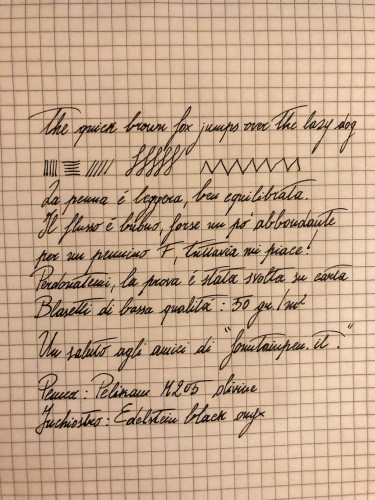 The quick brown fox jumps over the lazy dog
La penna é leggera, ben equilibrata.
Il flusso é buono, forse un pó abbondante
per un pennino F, tuttavia mi piace!
Perdonatemi, la prova é stata svolta su carta
Blasetti di bassa qualitá: 50 gr./m²
Un saluto agli amici di "fountainpen.it."
Penna: Pelikan M205 olivine
Inchiostro: Edelstein black onyx